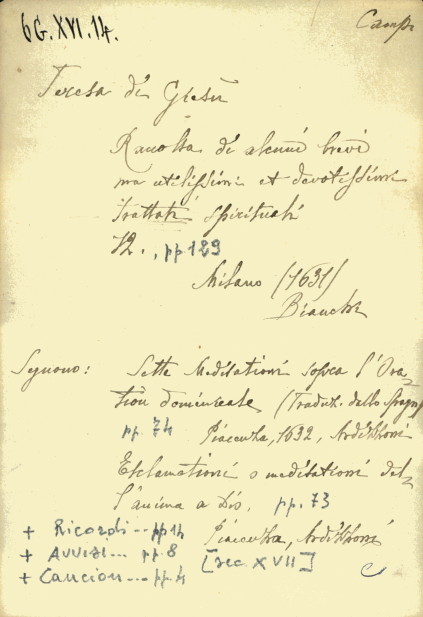 6G.XVI.14.
Camp.
Teresa di Giesù
Raccolta di alcuni brevi
ma utilissimi et devotissimi
trattati spirituali
12., pp 129
Milano (1631)
Bianchi
Seguono: Sette Meditationi sopra l'Ora-
tion dominicale (Traduz. dallo Spagn.)
pp. 74 Piacenza, 1632, Ardizzoni
Esclamationi o meditationi del-
l'anima a Dio. pp. 73
+ Ricordi -- pp 14 Piacenza, Ardizzoni
+ Avvisi... pp. 8 [sec. XVII]
+ Cancion... pp. 4